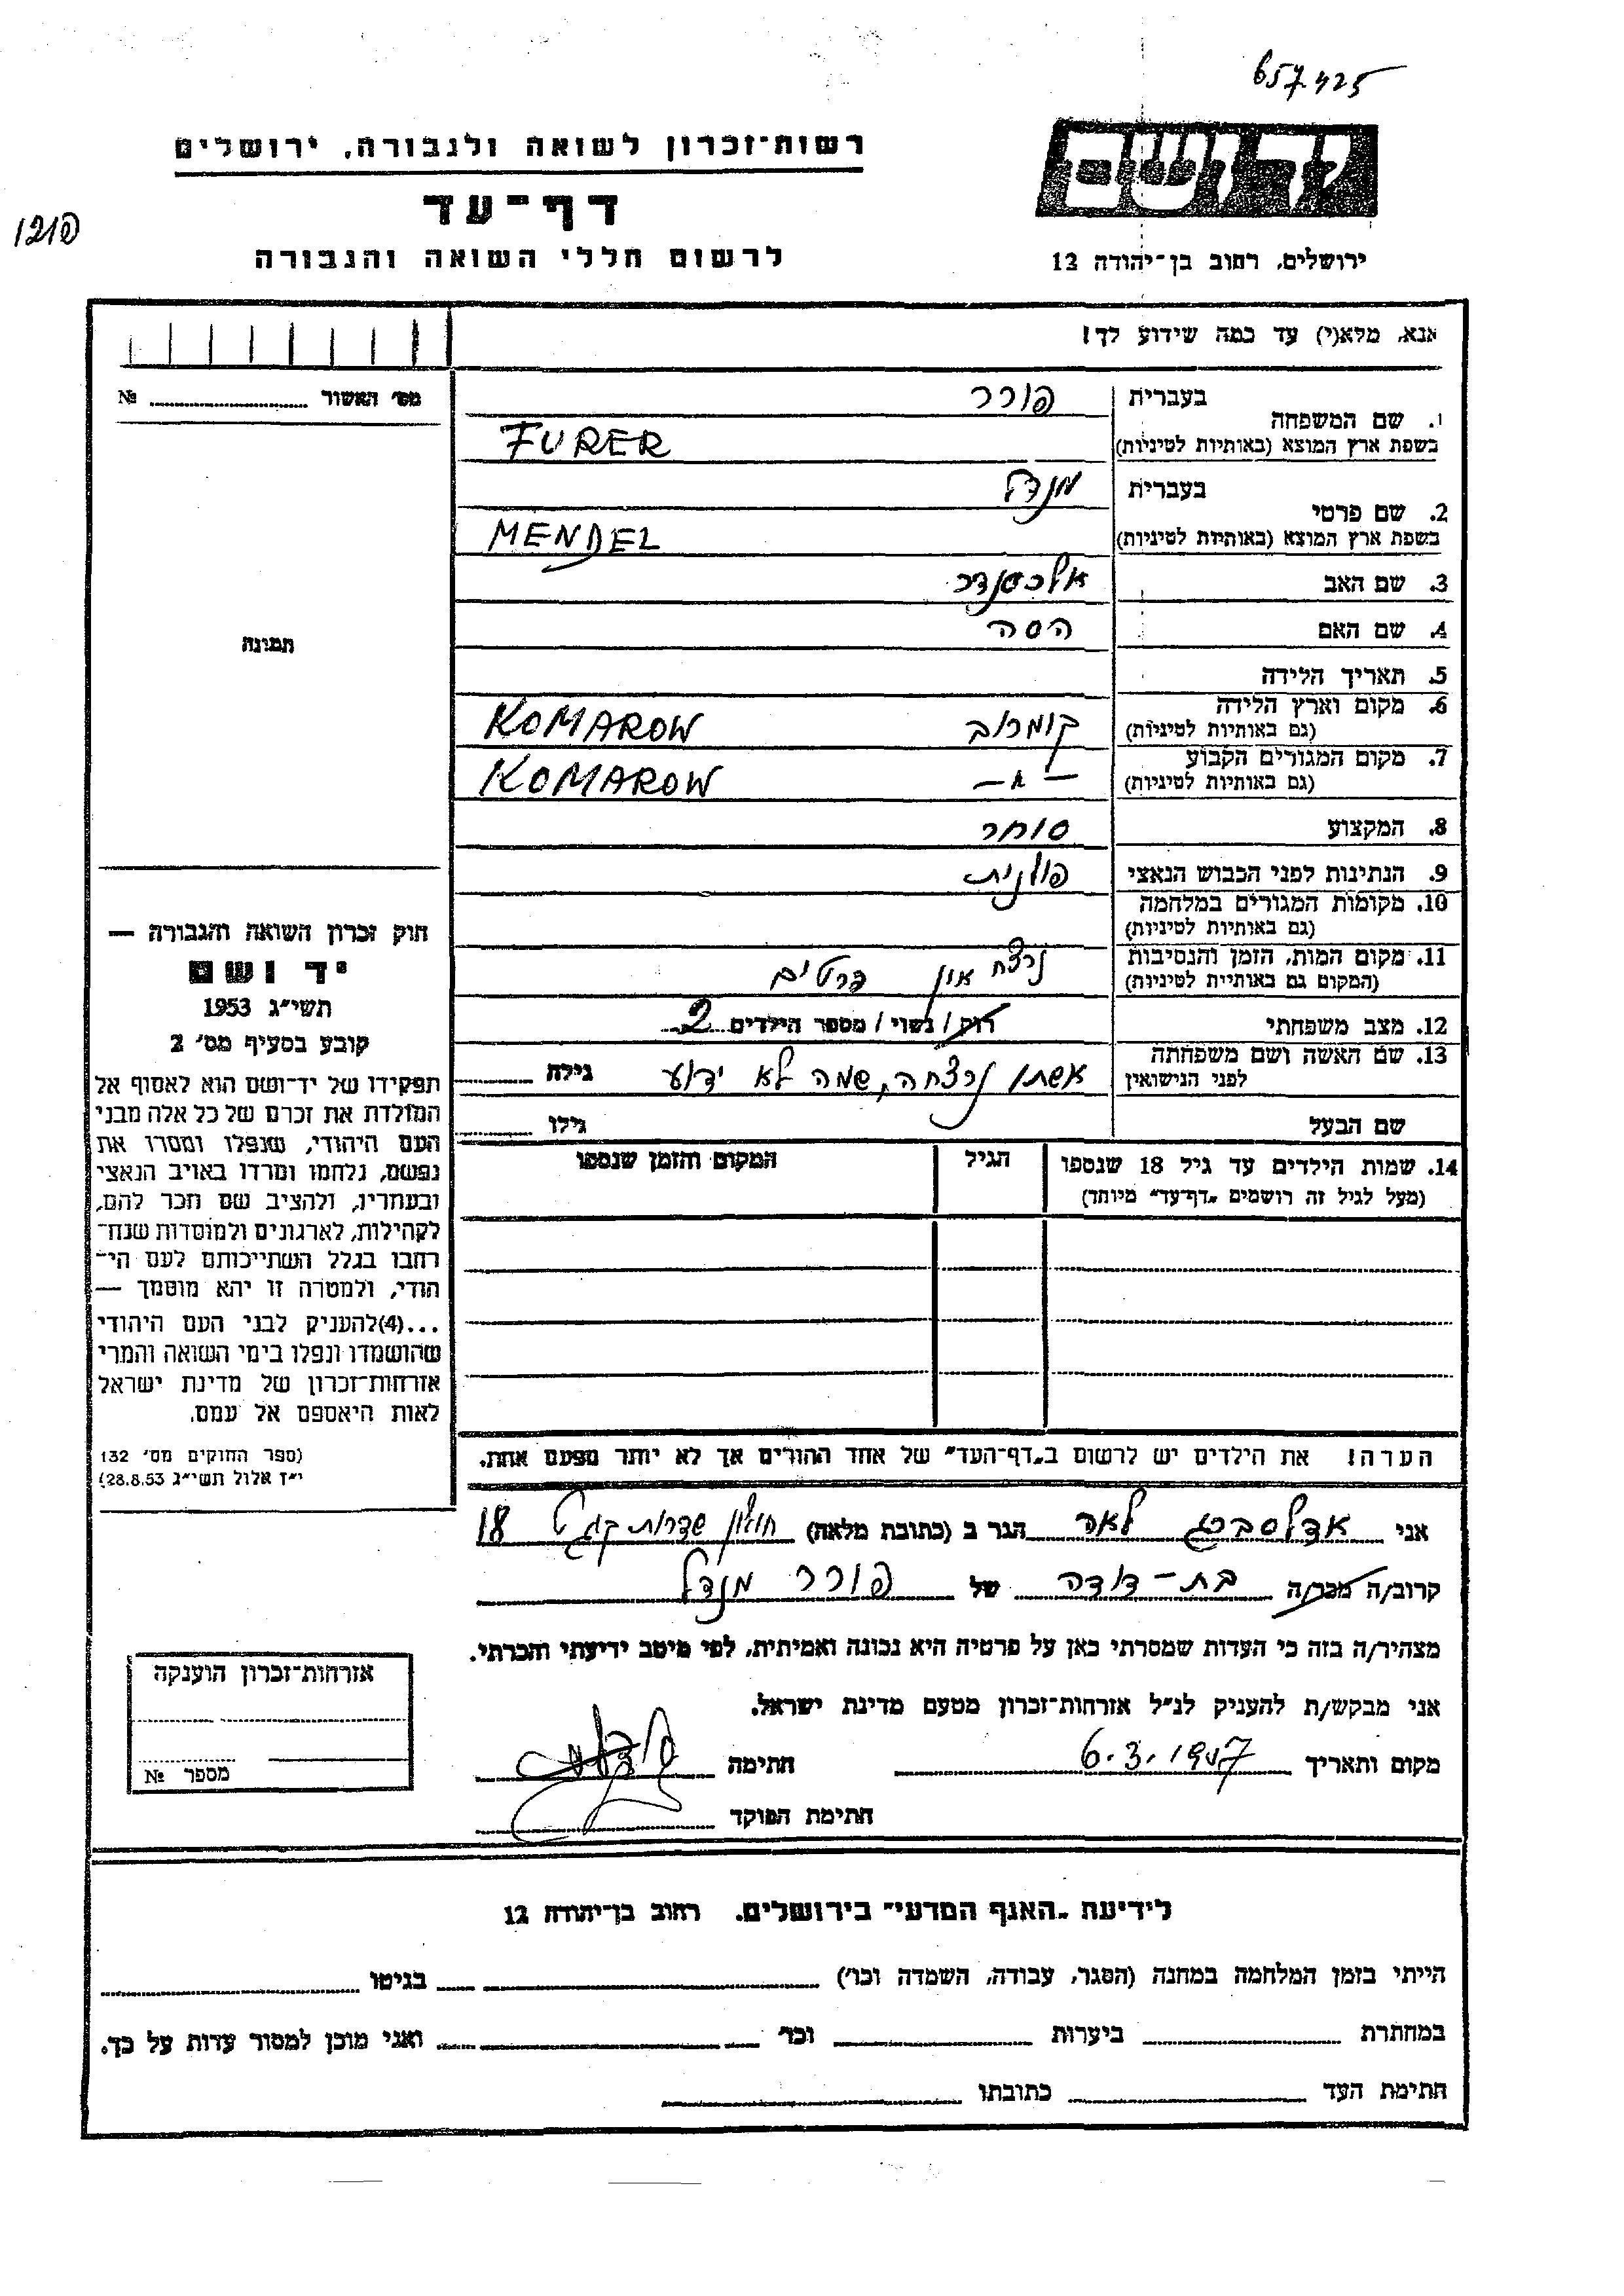 657425
רשות-זכרון לשואה ולגבורה, ירושלים
דף-עד
לרשום חללי השואה והגבורה
ירושלים, רחוב בן-יהודה 12
אנא, מלא(י) עד כמה שידוע לך!
מס' האשור № 
1. שם המשפחה בעברית פורר
בשפת ארץ המוצא (באותיות לטיניות) FURER
2. שם פרטי בעברית מנדל
בשפת ארץ המוצא (באותיות לטיניות) MENDEL
3. שם האב אלכסנדר
4. שם האם הסה
5. תאריך הלידה
6. מקום וארץ הלידה קומרוב KOMAROW
(גם באותיות לטיניות)
7. מקום המגורים הקבוע KOMAROW
(גם באותיות לטיניות)
8. המקצוע סוחר
9. הנתינות לפני הכבוש הנאצי פולנית
10. מקומות המגורים במלחמה
(גם באותיות לטיניות)
11. מקום המות, הזמן והנסיבות נרצח אין פרטים
(המקום גם באותיות לטיניות)
12. מצב משפחתי רוק / נשוי / מספר הילדים 2
13. שם האשה ושם משפחתה אשתו נרצחה, שמה לא ידוע גילה
לפני הנישואין
שם הבעל גילו
14. שמות הילדים עד גיל 18 שנספו הגיל המקום והזמן שנספו
(מעל לגיל זה רושמים "דף-עד" מיוחד)
תמונה
חוק זכרון השואה והגבורה —
יד ושם
תשי"ג 1953
קובע בסעיף מס' 2
תפקידו של יד-ושם הוא לאסוף אל
המולדת את זכרם של כל אלה מבני
העם היהודי, שנפלו ומסרו את
נפשם, נלחמו ומרדו באויב הנאצי
ובעוזריו, ולהציב שם וזכר להם,
לקהילות, לארגונים ולמוסדות שנח־
רבו בגלל השתייכותם לעם הי־
הודי, ולמטרה זו יהא מוסמך —
...(4) להעניק לבני העם היהודי
שהושמדו ונפלו בימי השואה והמרי
אזרחות-זכרון של מדינת ישראל
לאות היאספם אל עמם.
(ספר החוקים מס' 132
י"ז אלול תשי"ג 28.8.53)
הערה! את הילדים יש לרשום ב"דף-העד" של אחד ההורים אך לא יותר מפעם אחת.
אני אדלסברג לאה הגר ב (כתובת מלאה) חולון שדרות קוגל 18
קרוב/ה מכר/ה בת-דודה של פורר מנדל
מצהיר/ה בזה כי העדות שמסרתי כאן על פרטיה היא נכונה ואמיתית, לפי מיטב ידיעתי והכרתי.
אני מבקש/ת להעניק לנ"ל אזרחות-זכרון מטעם מדינת ישראל.
מקום ותאריך 6.3.1957 חתימה
חתימת הפוקד
אזרחות-זכרון הוענקה
מספר №
לידיעת "האגף המדעי" בירושלים, רחוב בן-יהודה 12
הייתי בזמן המלחמה במחנה (הסגר, עבודה, השמדה וכו') בגיטו
במחתרת ביערות וכו' ואני מוכן למסור עדות על כך.
חתימת העד כתובתו